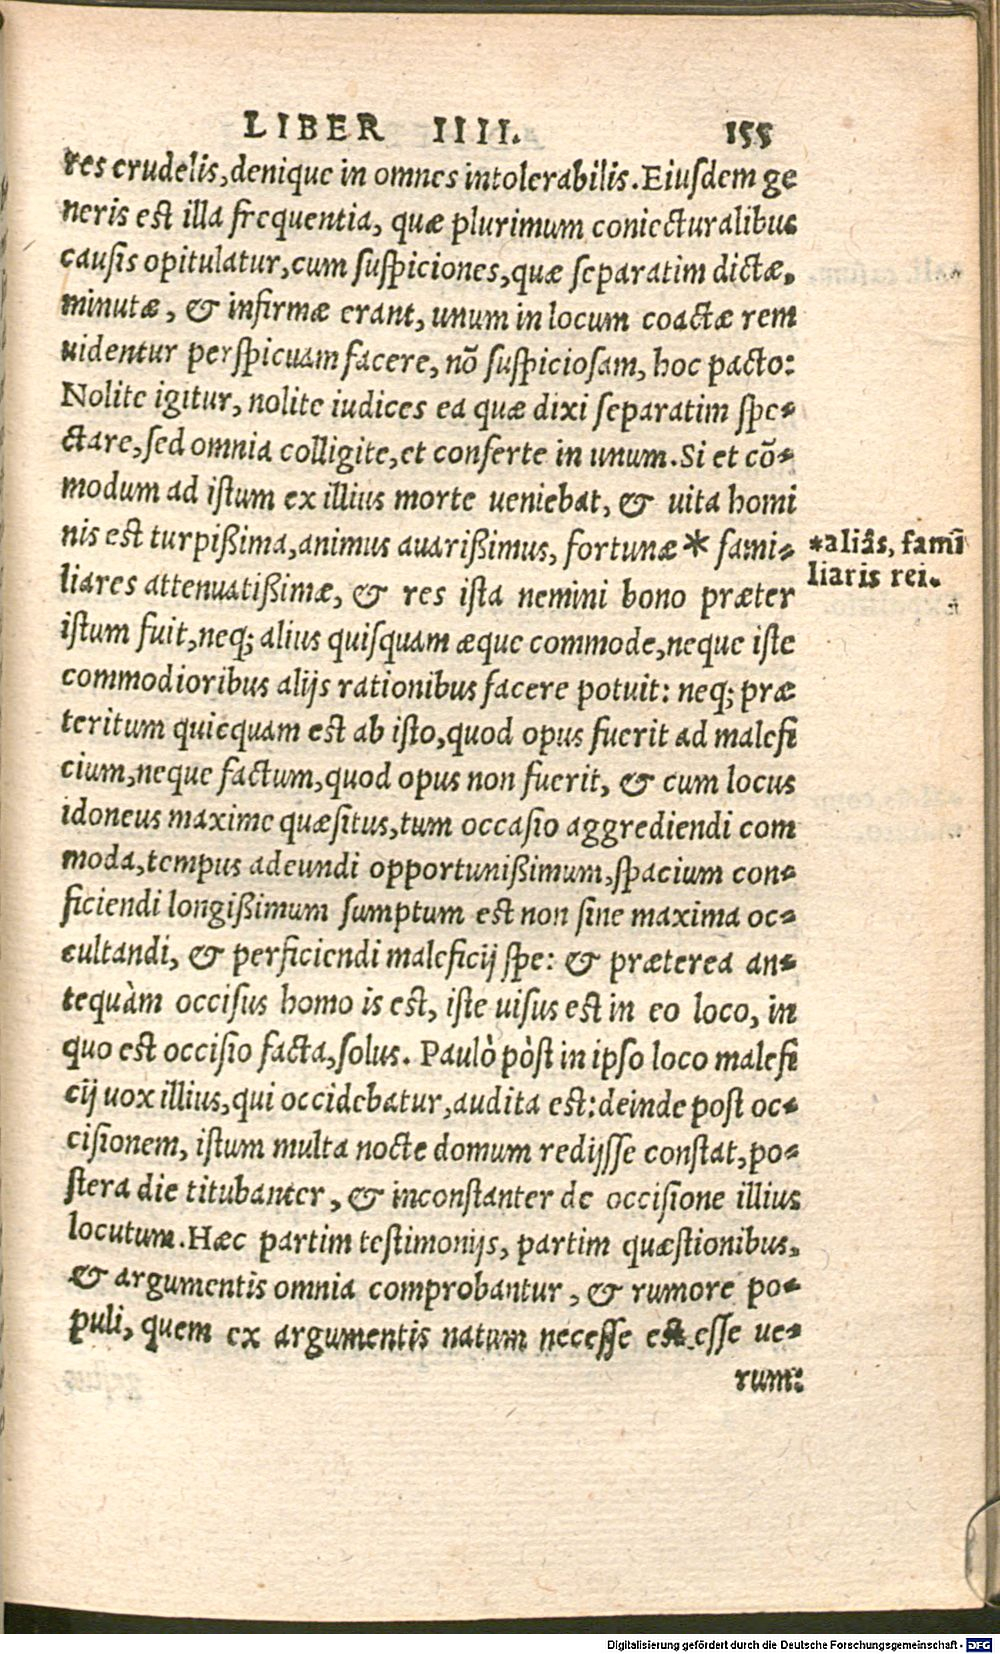 LIBER IIII. 155
res crudelis, denique in omnes intolerabilis. Eiusdem ge
neris est illa frequentia, quæ plurimum coniecturalibus
causis opitulatur, cum suspiciones, quæ separatim dictæ,
minutæ, & infirmæ erant, unum in locum coactæ rem
uidentur perspicuam facere, nõ suspiciosam, hoc pacto:
Nolite igitur, nolite iudices ea quæ dixi separatim spe-
ctare, sed omnia colligite, et conferte in unum. Si et cõ-
modum ad istum ex illius morte ueniebat, & uita homi
nis est turpißima, animus auarißimus, fortunæ * fami-
*aliâs, famī
liaris rei.
liares attenuatißimæ, & res ista nemini bono præter
istum fuit, neq; alius quisquam æque commode, neque iste
commodioribus alijs rationibus facere potuit: neq; præ
teritum quicquam est ab isto, quod opus fuerit ad malefi
cium, neque factum, quod opus non fuerit, & cum locus
idoneus maxime quæsitus, tum occasio aggrediendi com
moda, tempus adeundi opportunißimum, spacium con-
ficiendi longißimum sumptum est non sine maxima oc-
cultandi, & perficiendi maleficij spe: & præterea an-
tequàm occisus homo is est, iste uisus est in eo loco, in
quo est occisio facta, solus. Paulò pòst in ipso loco malefi
cij uox illius, qui occidebatur, audita est: deinde post oc-
cisionem, istum multa nocte domum redijsse constat, po-
stera die titubanter, & inconstanter de occisione illius
locutum. Hæc partim testimonijs, partim quæstionibus,
& argumentis omnia comprobantur, & rumore po-
puli, quem ex argumentis natum necesse est esse ue-
rum:
Digitalisierung gefördert durch die Deutsche Forschungsgemeinschaft - DFG